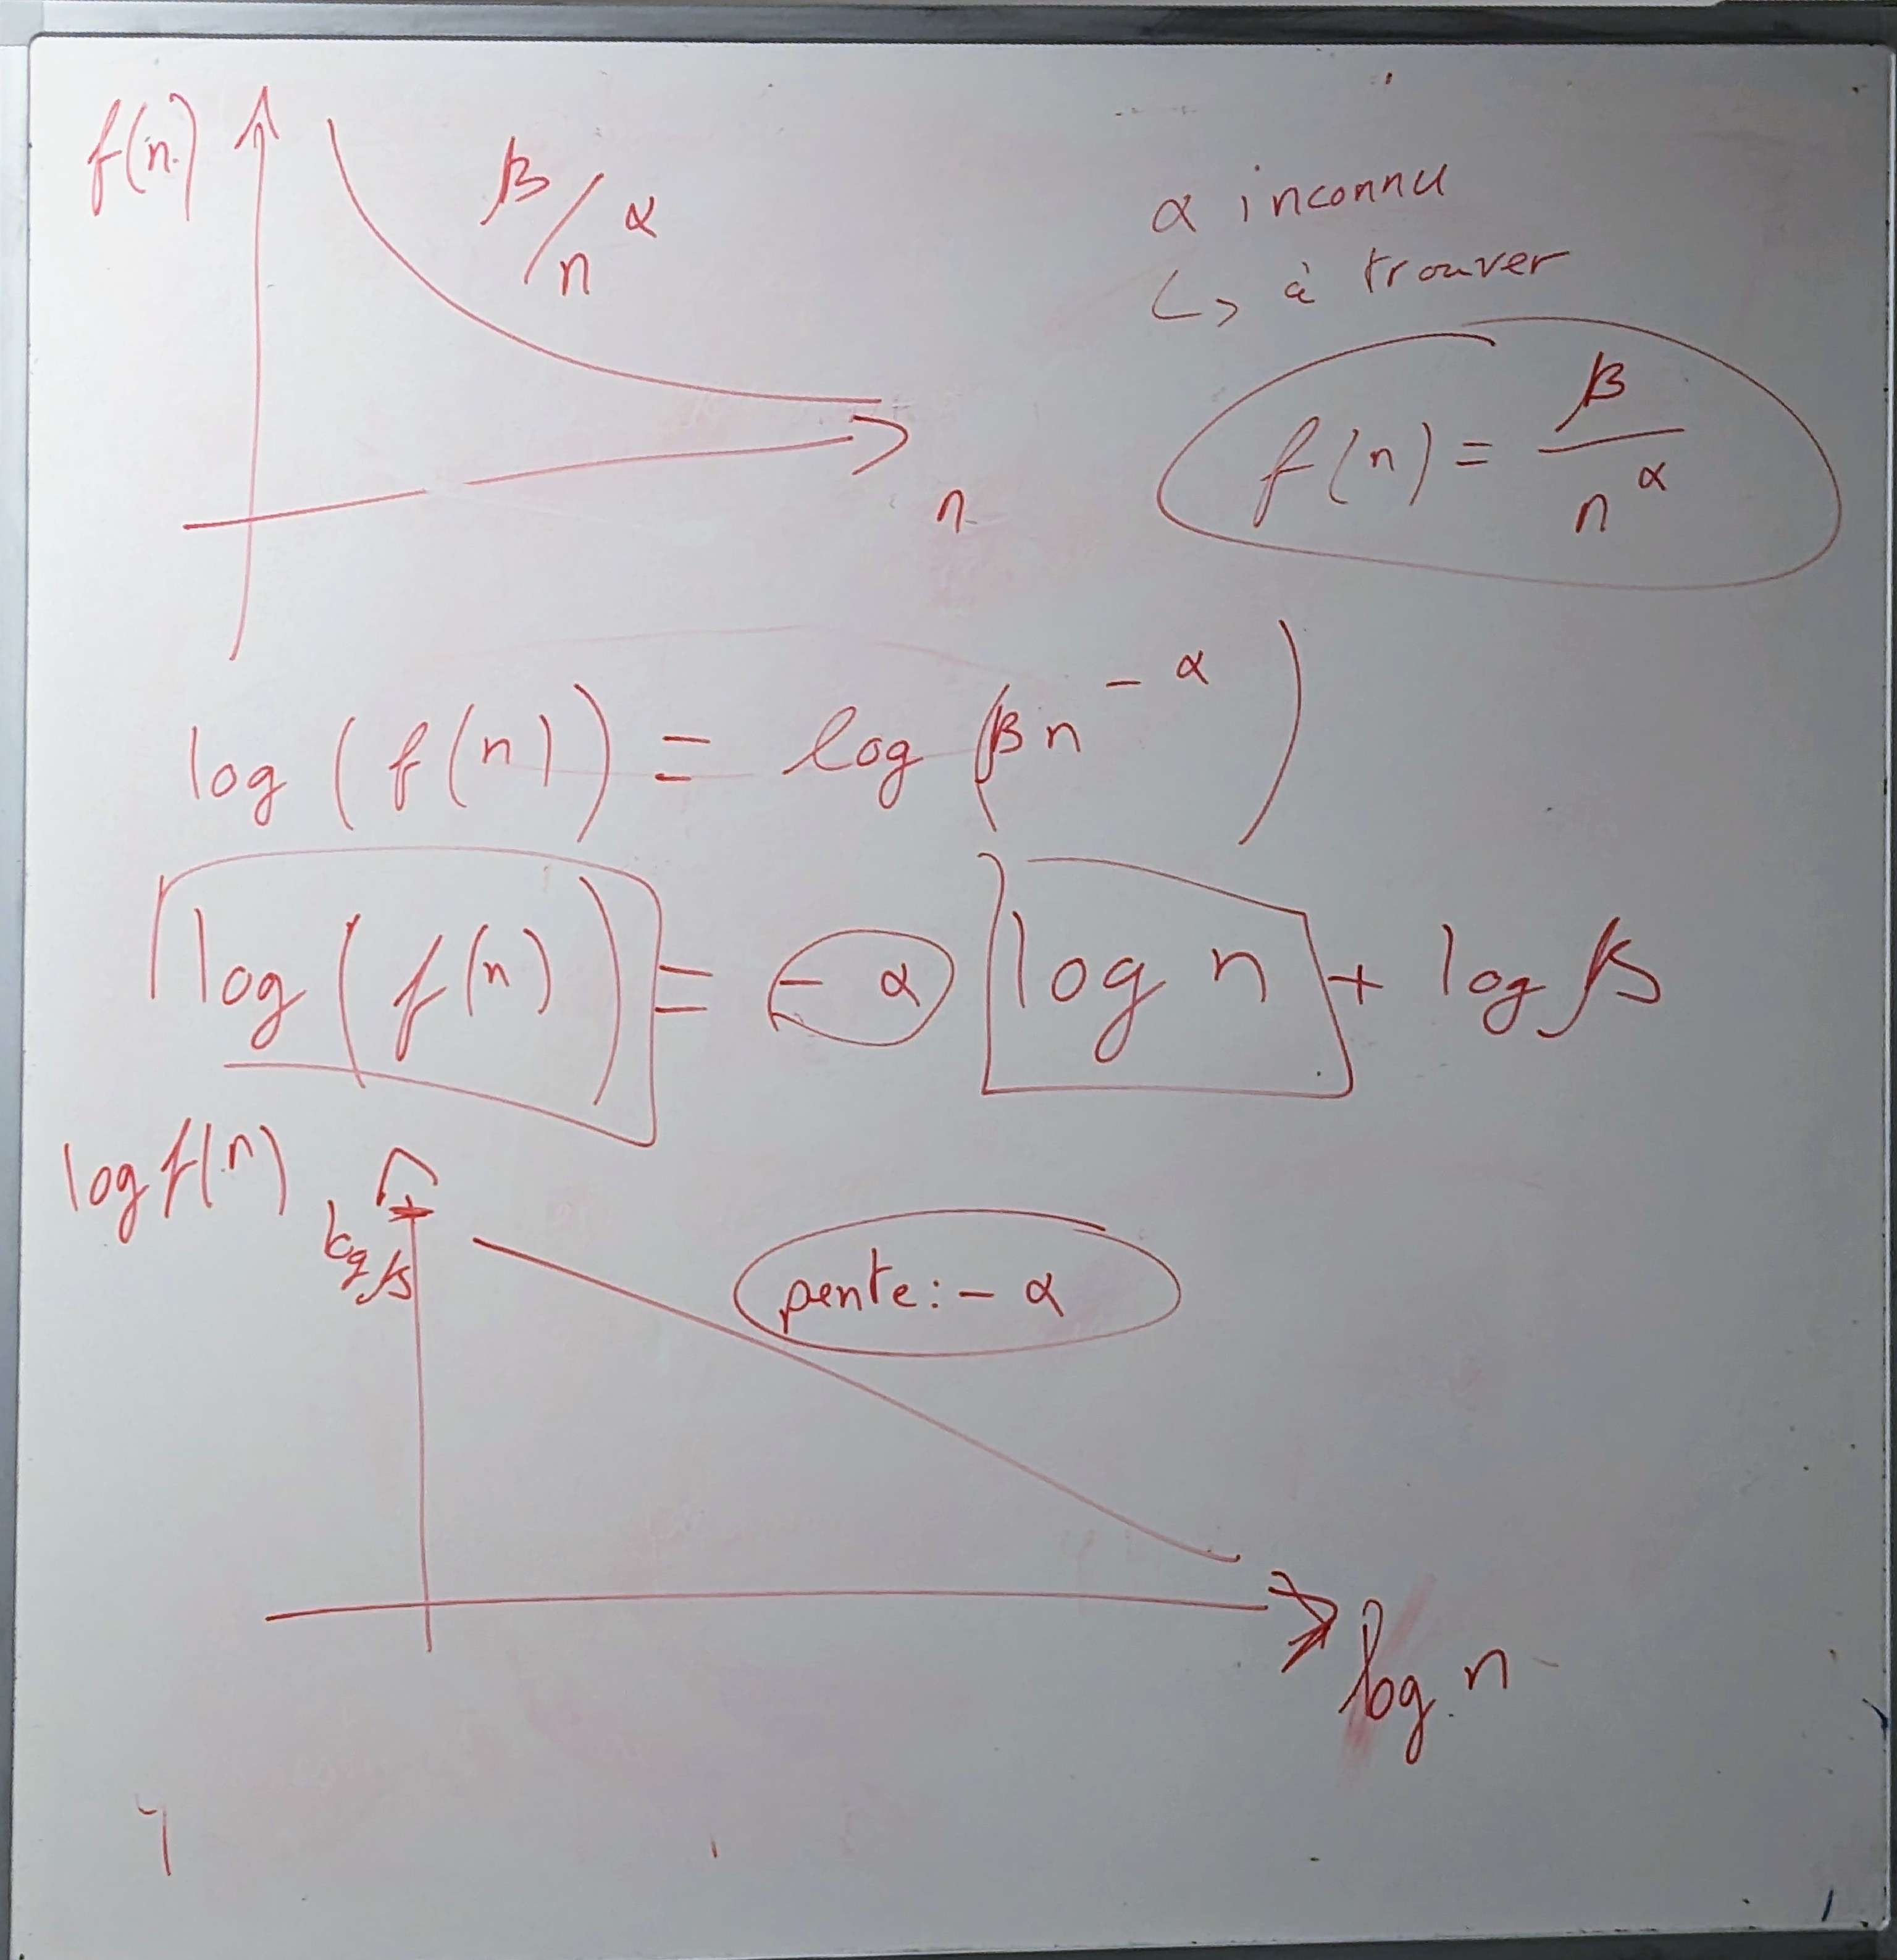 f(n)
β/n^α
n
α inconnu
↳ à trouver
f(n) = β/n^α
log (f(n)) = log (βn^-α)
log (f(n)) = - α log n + log β
log f(n)
log β
pente: - α
log n